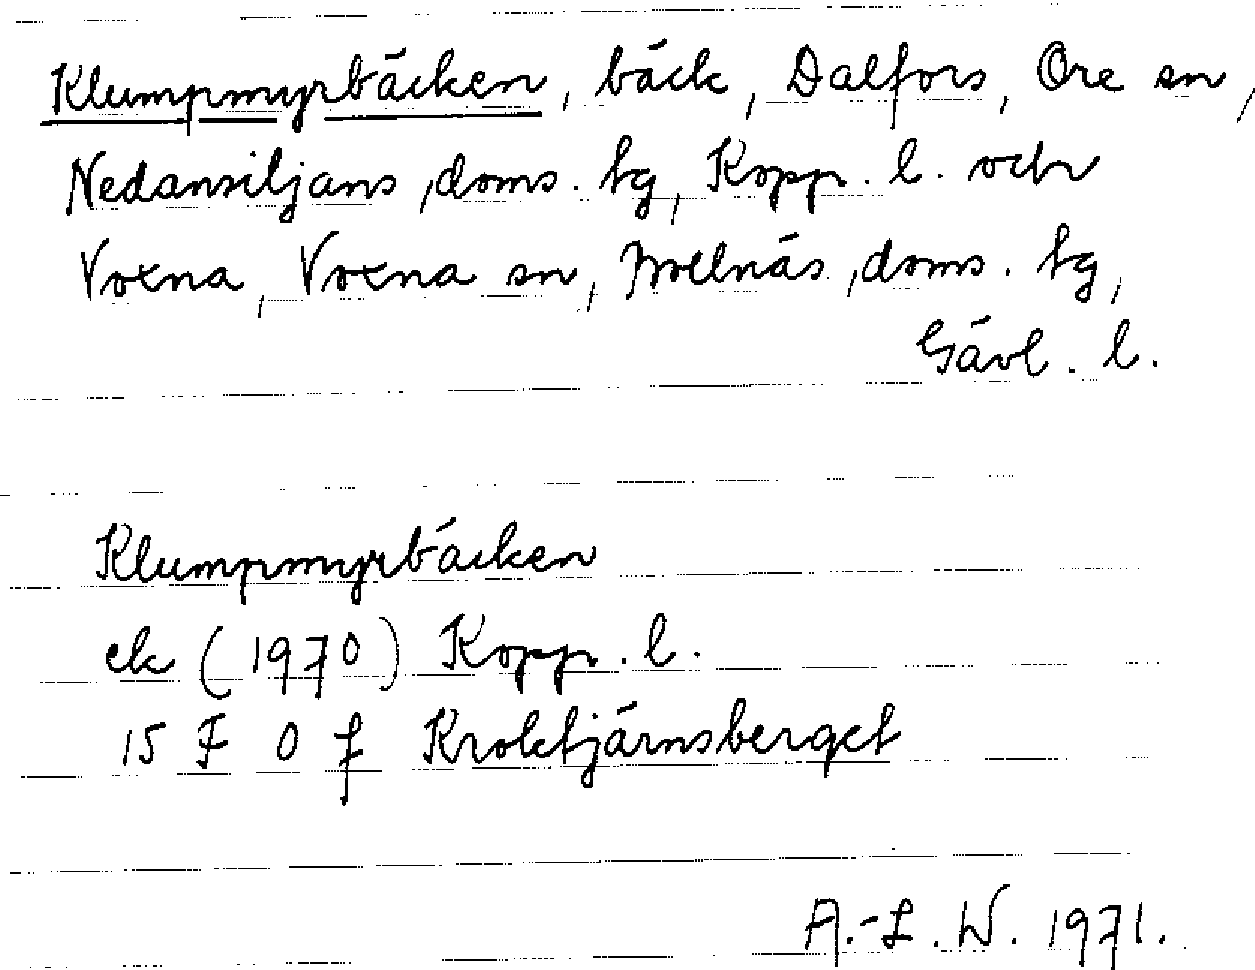 Klumpmyrbäcken, bäck, Dalfors, Ore sn,
Nedansiljans doms. hg, Kopp. l. och
Voxna, Voxna sn, Bollnäs doms. hg,
Gävl. l.
Klumpmyrbäcken
ek (1970) Kopp. l.
15 F 0 f Kroktjärnsberget
A.-L. W. 1971.